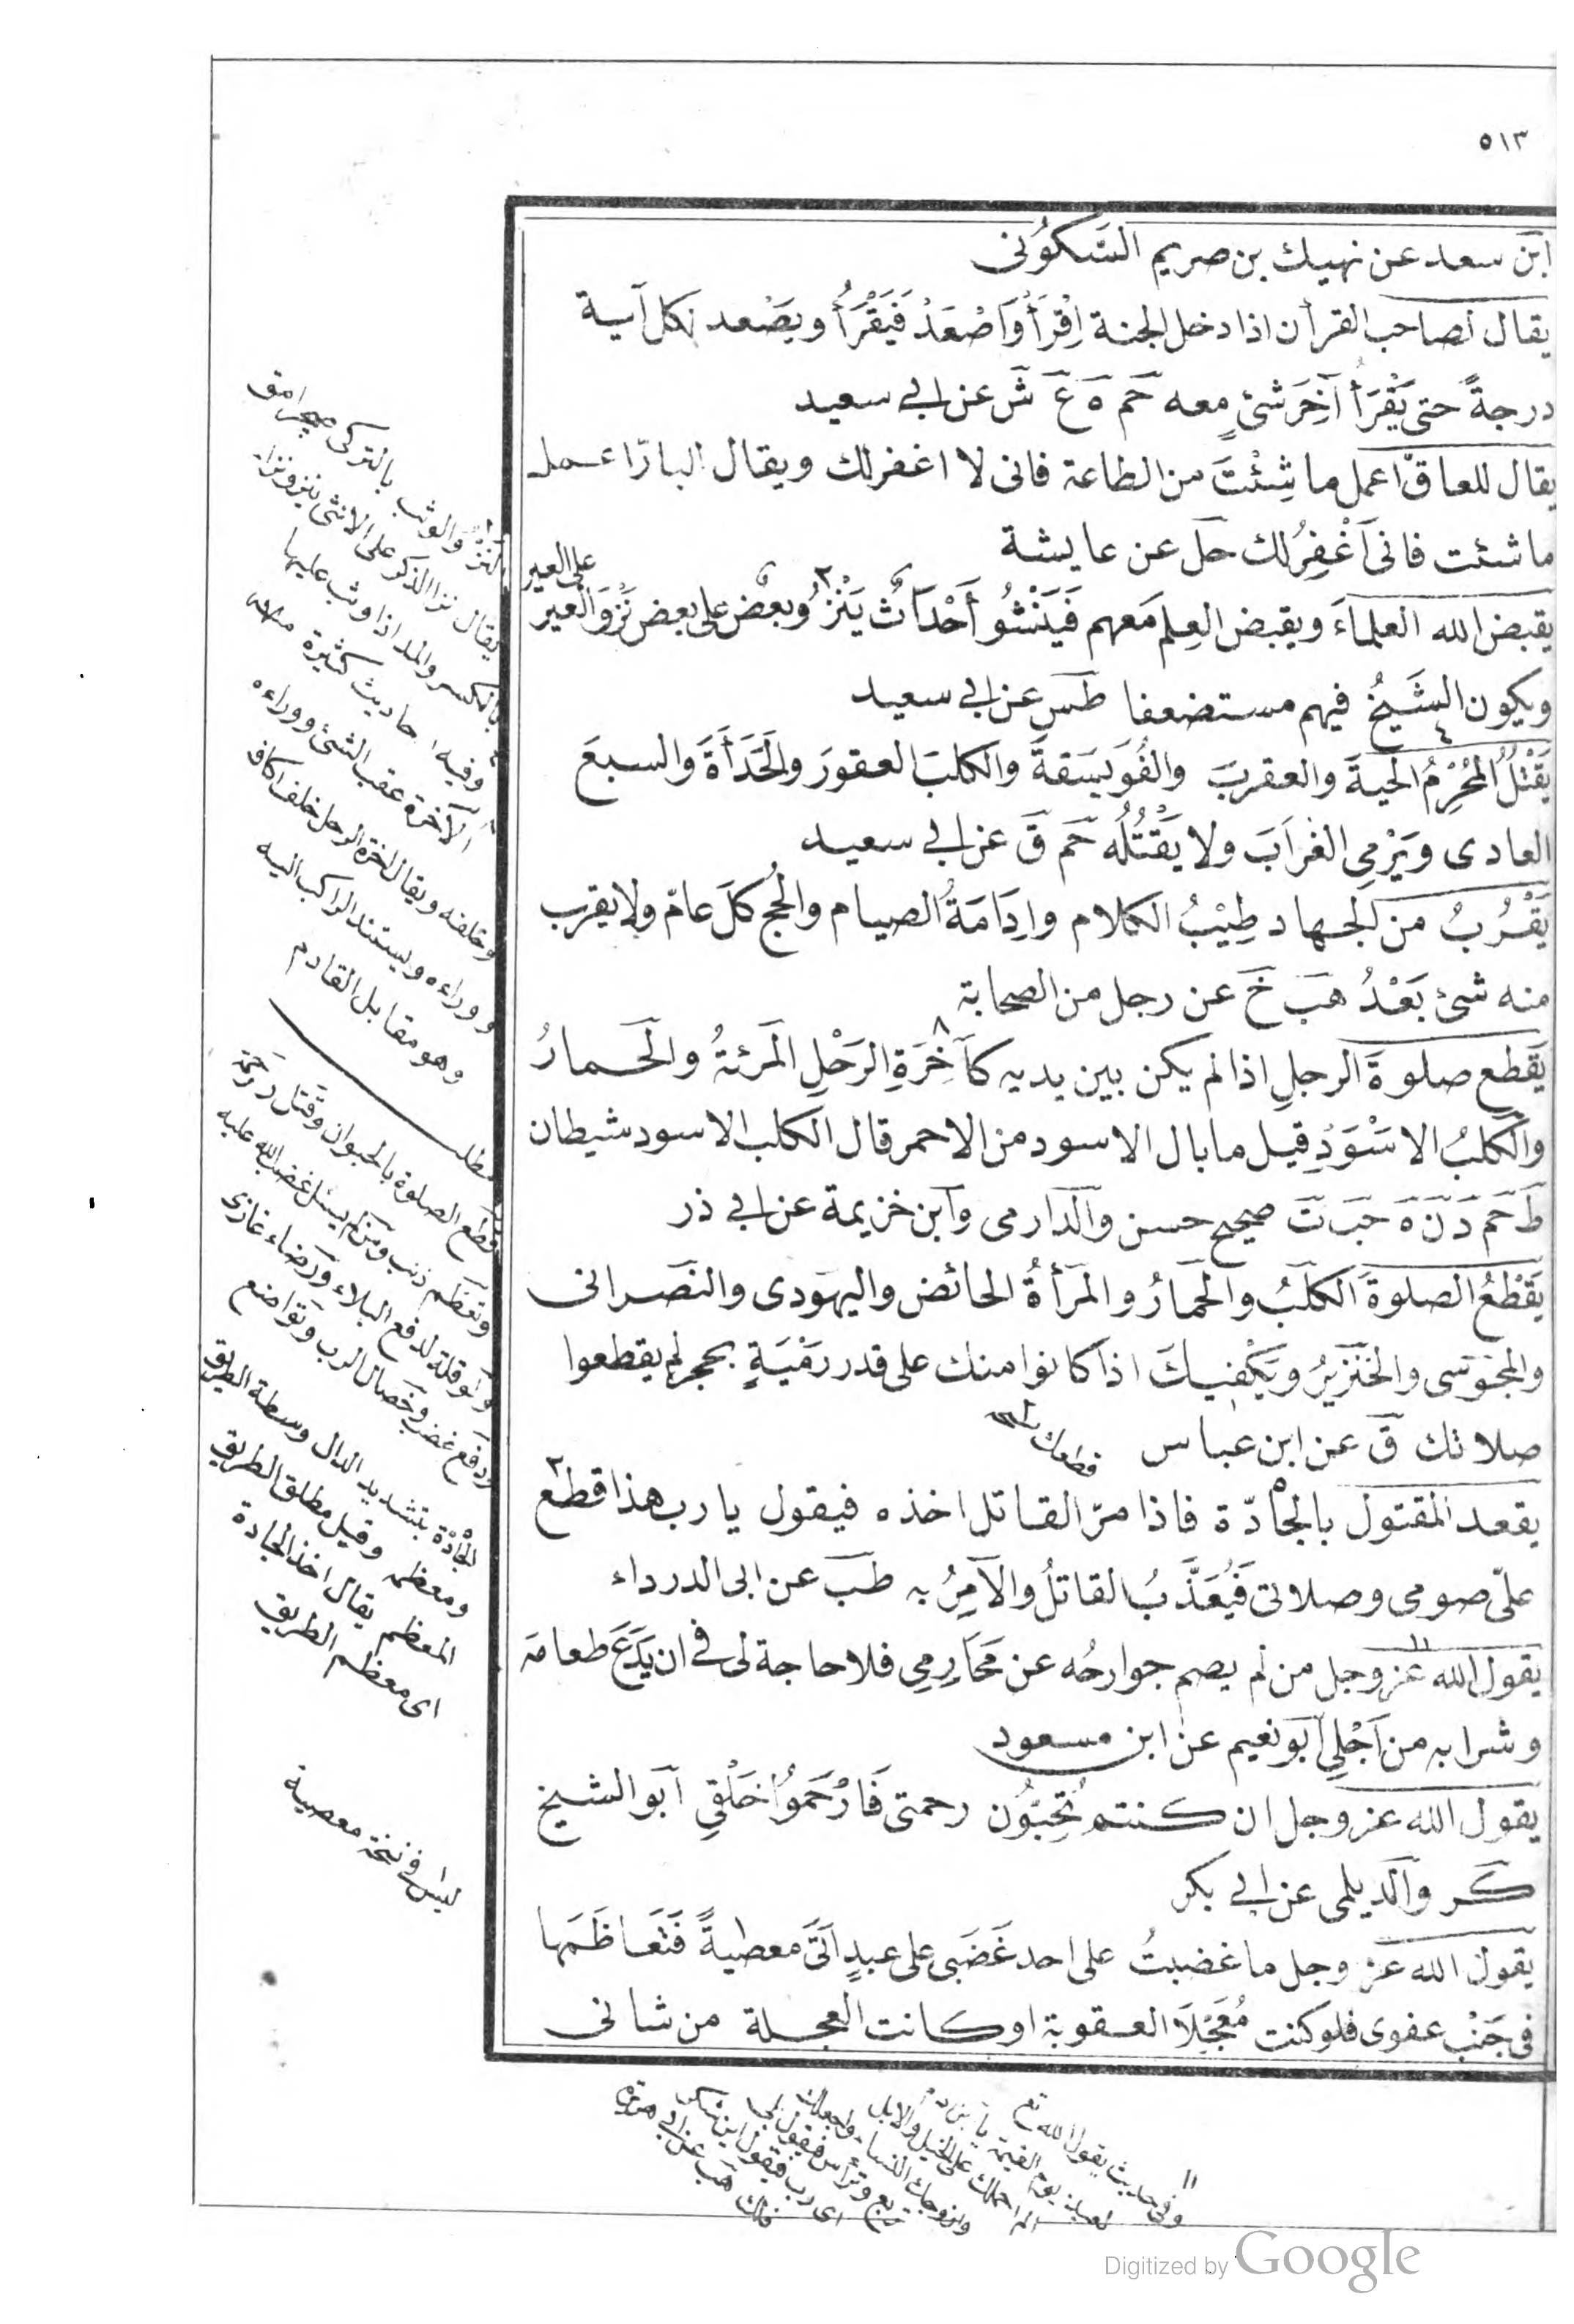 ٥١٣
ابن سعد عن نهيك بن صريم السَّكُونى
يقال لصاحب القرأن اذا دخل الجنة اِقْرَأْ وَاصْعَدْ فَيَقْرَأُ ويَصْعد بكل آية
درجةً حتى يَقْرَأَ آخِرَ شئٍ معه حَم ه ع ش عن ابى سعيد
يقال للعاقّ اعمل ما شِئْتَ من الطاعة فانى لا اغفر لك ويقال البارّ اعمل
ما شئت فانى اَغْفِرُ لك حَل عن عايشة
على العير
يقبض الله العلماءَ ويقبض العِلم مَعهم فَيَنْشُو أَحْدَاثٌ يَنْزُو بعضٌ على بعض نَزْوَ العير
ويكون الشَيخُ فيهم مستضعفا طَس عن ابى سعيد
يَقْتُلُ المُحْرِمُ الحيةَ والعقربَ والفُوَيسَقةَ والكلبَ العقورَ والحَدَأَةَ والسبعَ
العادى ويَرْمِى الغُرَابَ ولا يَقْتُلُه حَم ق عن ابى سعيد
يَقْرُبُ من الجهاد طِيْبُ الكلام وادَامَةُ الصيام والحُج كلَ عامّ ولا يقرب
منه شئ بَعْدُ هب خ عن رجل من الصحابة
يَقْطع صلوةَ الرجلِ اذا لم يكن بين يديه كآخِرَةِ الرَحْلِ المَرئةُ والحمارُ
والكَلبُ الاسْوَدِ قيل ما بال الاسود من الاحمر قال الكلب الاسود شيطان
طَ حَم دَ نَ ه حَبَ تَ صحيح حسن والدارمى وابن خزيمة عن ابى ذر
يَقْطَعُ الصلوةَ الكلبُ والحمارُ والمرَأةُ الحائض واليهَودى والنَصرانى
والمجَوسَى والخنَزيرُ ويَكْفيكَ اذا كانوا منك على قدر رَمْيَةٍ بحجر لم يقطعوا
صلاتك ق عن ابن عباس
يقعد المقتول بالجْادّة فاذا مرّ القاتل اخذه فيقول يا رب هذا قطع
علىّ صومى وصلاتى فَيُعَذَّبُ القاتلُ والآمِرُ به طَبَ عن ابى الدرداء
يقول الله عزوجل من لم يصم جوارحُه عن مَحَارِمِى فلا حاجة لى فى ان يَدَعَ طعامَه
وشرابه من اَجْلِى ابَو نعيم عن ابن مسعود
يقول الله عزوجل ان كنتم تُحِبّوُن رحمتى فَارْحَموُا خَلْقِى ابَو الشيخ
كَر والديلمى عن ابى بكر
يقول الله عز وجل ما غضبتُ على احد غَضَبى على عبدٍ اَتىَ معصيةً فَتَعَاظَمَها
فى جَنْب عفوى فلو كنت مُعَجِّلاَ العقوبة او كانت العجلة من شانى
يقال نزا الذكر على الانثى ينزو نزاء
بالكسر والمد اذا وثب عليها
وفيه احاديث كثيرة
الآخرة عقب الشئ ووراءه
وخلفه ويقال اخرة الرحل خلف
ووراءه ويستند الراكب اليه
وهو مقابل القادم
مطلب
قطع الصلوة بالحيوان وقتل
الجْادّة بتشديد الدال وسطة الطريق
ومعظمه وقيل مطلق الطريق
المعظم يقال اخذ الجادة
اى معظم الطريق
ليس فى نسخة معصية
وفى حديث يقول الله تع